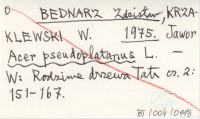 BEDNARZ Zdzisław, KRZA-
KLEWSKI W. 1975. Jawor
Acer pseudoplatanus L. —
W: Rodzime drzewa Tatr cz. 2:
151-167.
BT/004/0449